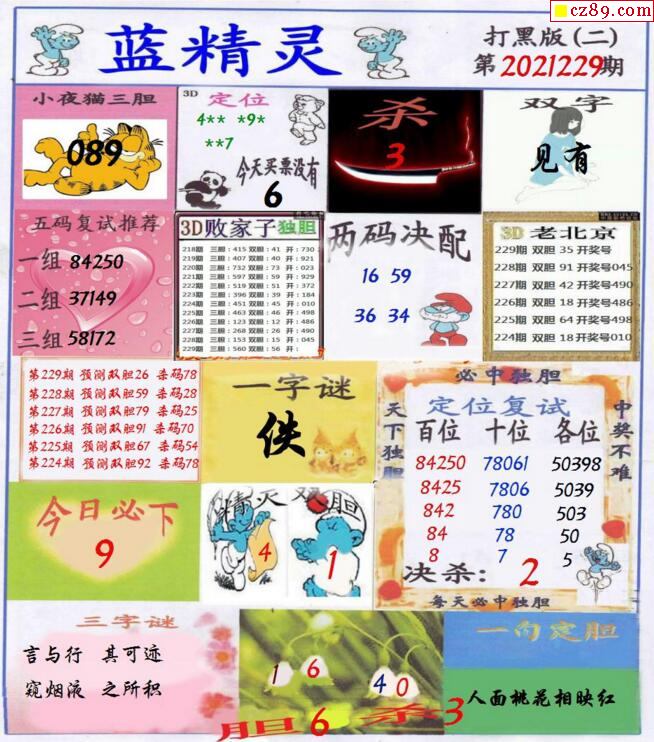 cz89.com
蓝精灵
打黑版(二)
第2021229期
小夜猫三胆
089
3D 定位
4** *9*
**7
今天买票没有
6
杀
3
双字
见有
五码复试推荐
一组 84250
二组 37149
三组 58172
3D败家子独胆
218期 三胆:415 双胆:41 开:730
219期 三胆:407 双胆:40 开:921
220期 三胆:732 双胆:73 开:023
221期 三胆:597 双胆:59 开:629
222期 三胆:519 双胆:51 开:372
223期 三胆:396 双胆:39 开:184
224期 三胆:451 双胆:45 开:010
225期 三胆:248 双胆:24 开:498
226期 三胆:123 双胆:12 开:486
227期 三胆:268 双胆:26 开:490
228期 三胆:153 双胆:15 开:045
229期 三胆:560 双胆:56 开:
两码决配
16 59
36 34
3D 老北京
229期 双胆 35 开奖号
228期 双胆 91 开奖号045
227期 双胆 42 开奖号490
226期 双胆 18 开奖号486
225期 双胆 64 开奖号498
224期 双胆 18 开奖号010
第229期 预测双胆26 杀码78
第228期 预测双胆59 杀码28
第227期 预测双胆79 杀码25
第226期 预测双胆91 杀码70
第225期 预测双胆67 杀码54
第224期 预测双胆92 杀码78
一字谜
佚
必中独胆
天下独胆
中奖不难
定位复试
百位 十位 各位
84250 78061 50398
8425 7806 5039
842 780 503
84 78 50
8 7 5
决杀: 2
每天必中独胆
今日必下
9
精灵双胆
4
1
三字谜
言与行 其可迹
窥烟液 之所积
1 6
4 0
胆6 杀3
一句定胆
人面桃花相映红